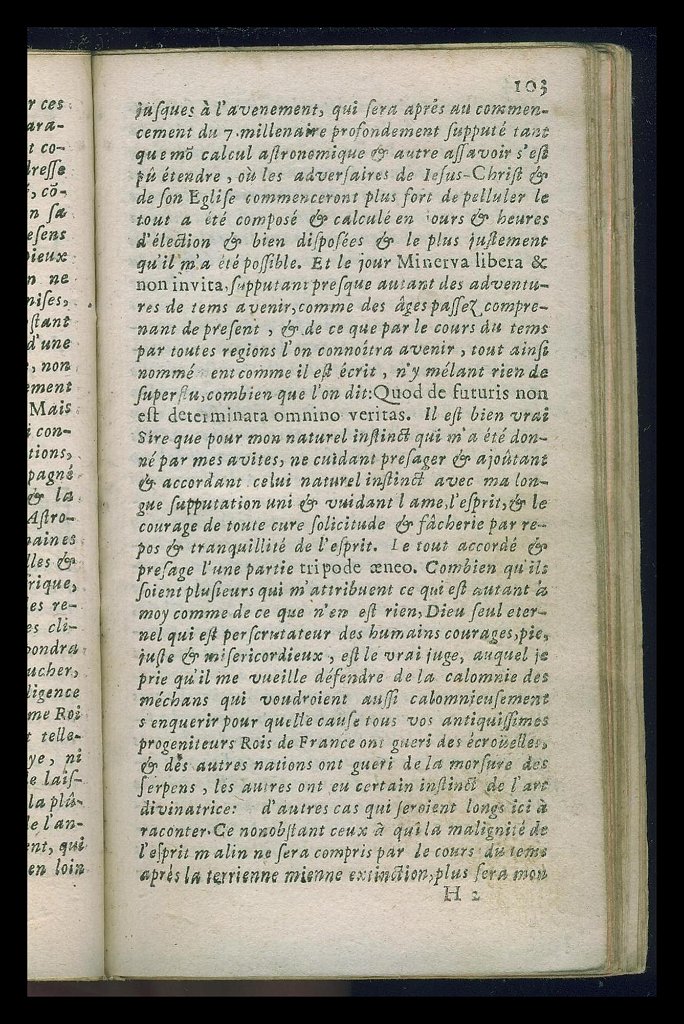 r ces
ara-
t co-
dresse
, cõ-
n sa
esens
bieux
n ne
mises,
stant
d'une
, non
ement
Mais
i con-
tions,
pagné
& la
Astro-
naines
lles &
rique,
es re-
es cli-
pondra
ucher,
ligence
me Roi
t telle-
ye, ni
e lais-
la plû-
de l'an-
ent, qui
en loin
103
jusques à l'avenement, qui sera aprés au commen-
cement du 7. millenaire profondement supputé tant
que mõ calcul astronomique & autre assavoir s'est
pû étendre, où les adversaires de Iesus-Christ &
de son Eglise commenceront plus fort de pelluler le
tout a été composé & calculé en jours & heures
d'élection & bien disposées & le plus justement
qu'il m'a été possible. Et le jour Minerva libera &
non invita, supputant presque autant des adventu-
res de tems avenir, comme des âges passez compre-
nant de present, & de ce que par le cours du tems
par toutes regions l'on connoîtra avenir, tout ainsi
nommé ent comme il est écrit, n'y mélant rien de
superflu, combien que l'on dit: Quod de futuris non
est determinata omnino veritas. Il est bien vrai
Sire que pour mon naturel instinct qui m'a été don-
né par mes avites, ne cuidant presager & ajoûtant
& accordant celui naturel instinct avec ma lon-
gue supputation uni & vuidant l ame, l'esprit, & le
courage de toute cure solicitude & fâcherie par re-
pos & tranquillité de l'esprit. Le tout accordé &
presage l'une partie tripode æneo. Combien qu'ils
soient plusieurs qui m'attribuent ce qui est autant à
moy comme de ce que n'en est rien, Dieu seul eter-
nel qui est perscrutateur des humains courages, pie,
juste & misericordieux, est le vrai juge, auquel je
prie qu'il me vueille défendre de la calomnie des
méchans qui voudroient aussi calomnieusement
s enquerir pour quelle cause tous vos antiquissimes
progeniteurs Rois de France ont gueri des écroüelles,
& des autres nations ont gueri de la morsure des
serpens, les autres ont eu certain instinct de l'art
divinatrice: d'autres cas qui seroient longs ici à
raconter. Ce nonobstant ceux à qui la malignité de
l'esprit malin ne sera compris par le cours du tems
aprés la terrienne mienne extinction, plus sera mon
H 2